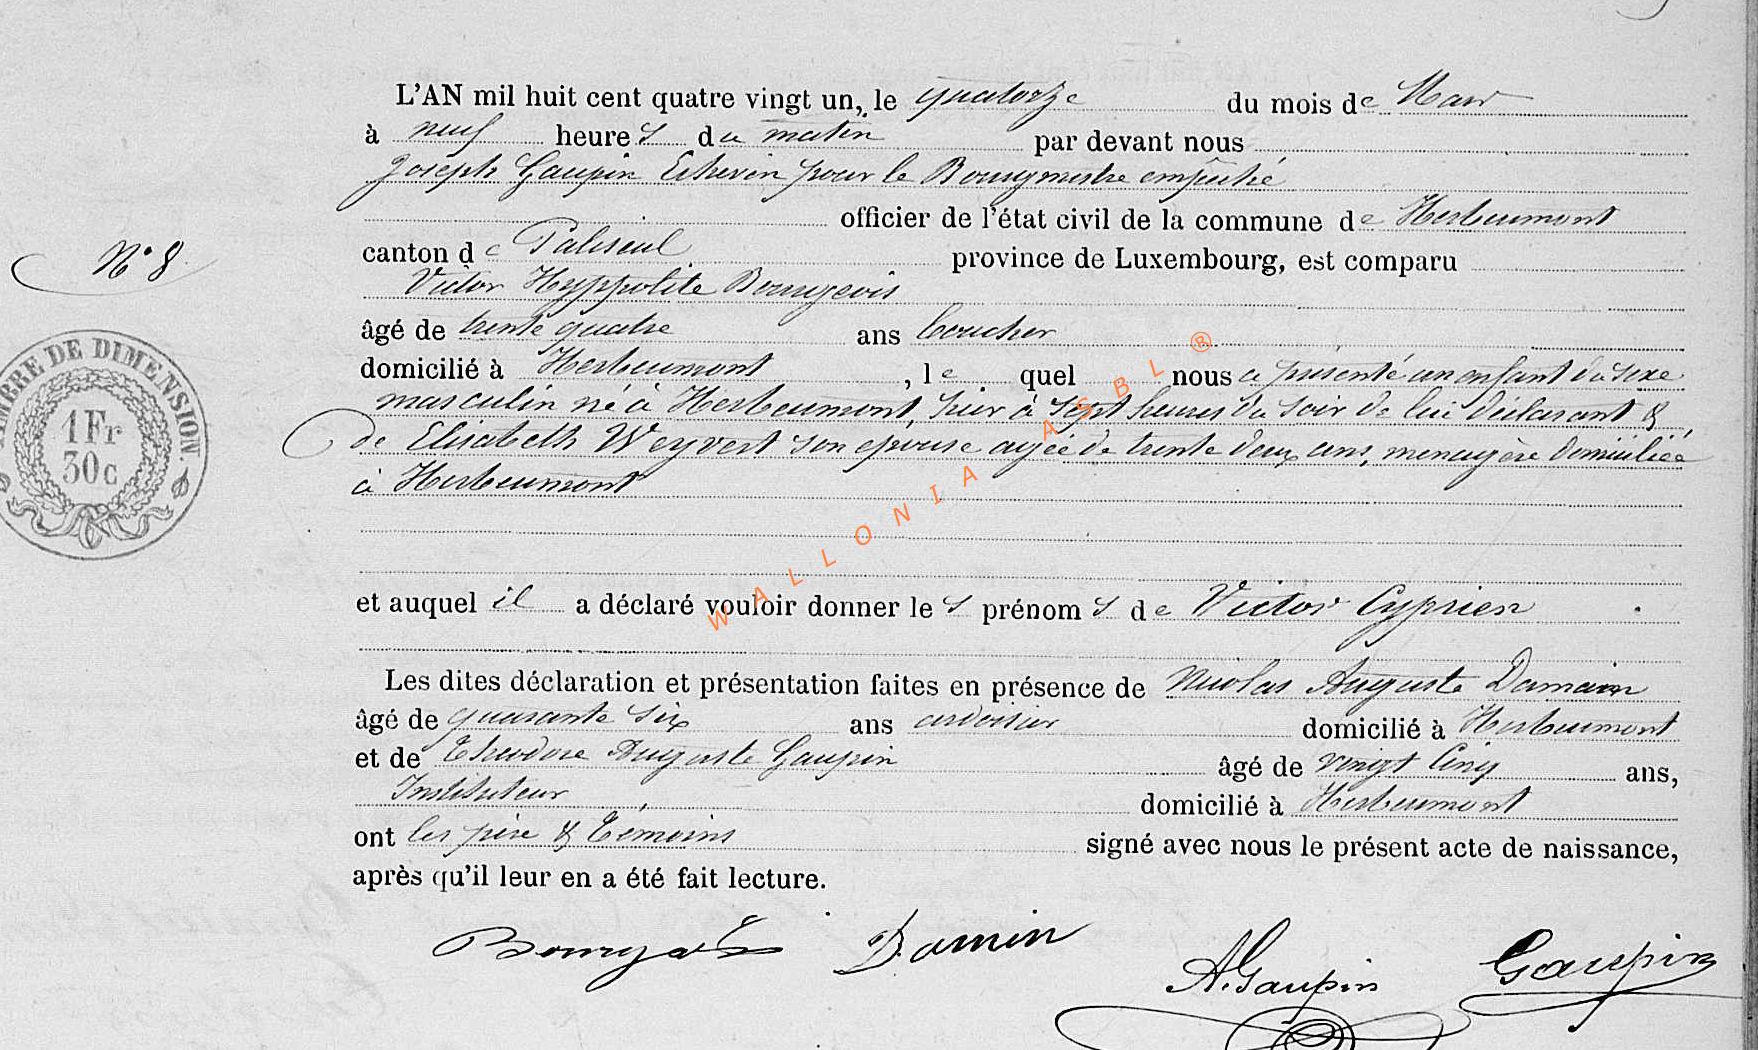 L'AN mil huit cent quatre vingt un, le quatorze du mois de Mars
à neuf heures du matin par devant nous
Joseph Gaupin Echevin pour le Bourgmestre empêché
officier de l'état civil de la commune de Herbeumont
N° 8
canton de Paliseul province de Luxembourg, est comparu
Victor Hyppolite Bourgeois
âgé de trente quatre ans boucher
domicilié à Herbeumont, le quel nous a présenté un enfant du sexe
masculin né à Herbeumont, hier à sept heures du soir de lui declarant &
de Elisabeth Weyvert son epouse agée de trente deux ans, menagère domiciliée
à Herbeumont
TIMBRE DE DIMENSION
1 Fr
30c
WALLONIA ASBL ®
et auquel il a déclaré vouloir donner les prénoms de Victor Cyprien.
Les dites déclaration et présentation faites en présence de Nicolas Auguste Damain
âgé de quarante six ans ardoisier domicilié à Herbeumont
et de Théodore Auguste Gaupin âgé de vingt cinq ans,
Instituteur domicilié à Herbeumont
ont les père & témoins signé avec nous le présent acte de naissance,
après qu'il leur en a été fait lecture.
Bourgeois Damin A. Gaupin Gaupin